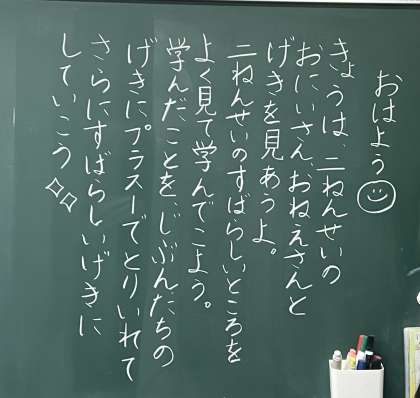 おはよう
きょうは、二ねんせいの
おにいさん、おねえさんと
げきを見あうよ。
二ねんせいのすばらしいところを
よく見て学んでこよう。
学んだことを、じぶんたちの
げきにプラスーでとりいれて
さらにすばらしいげきに
していこう